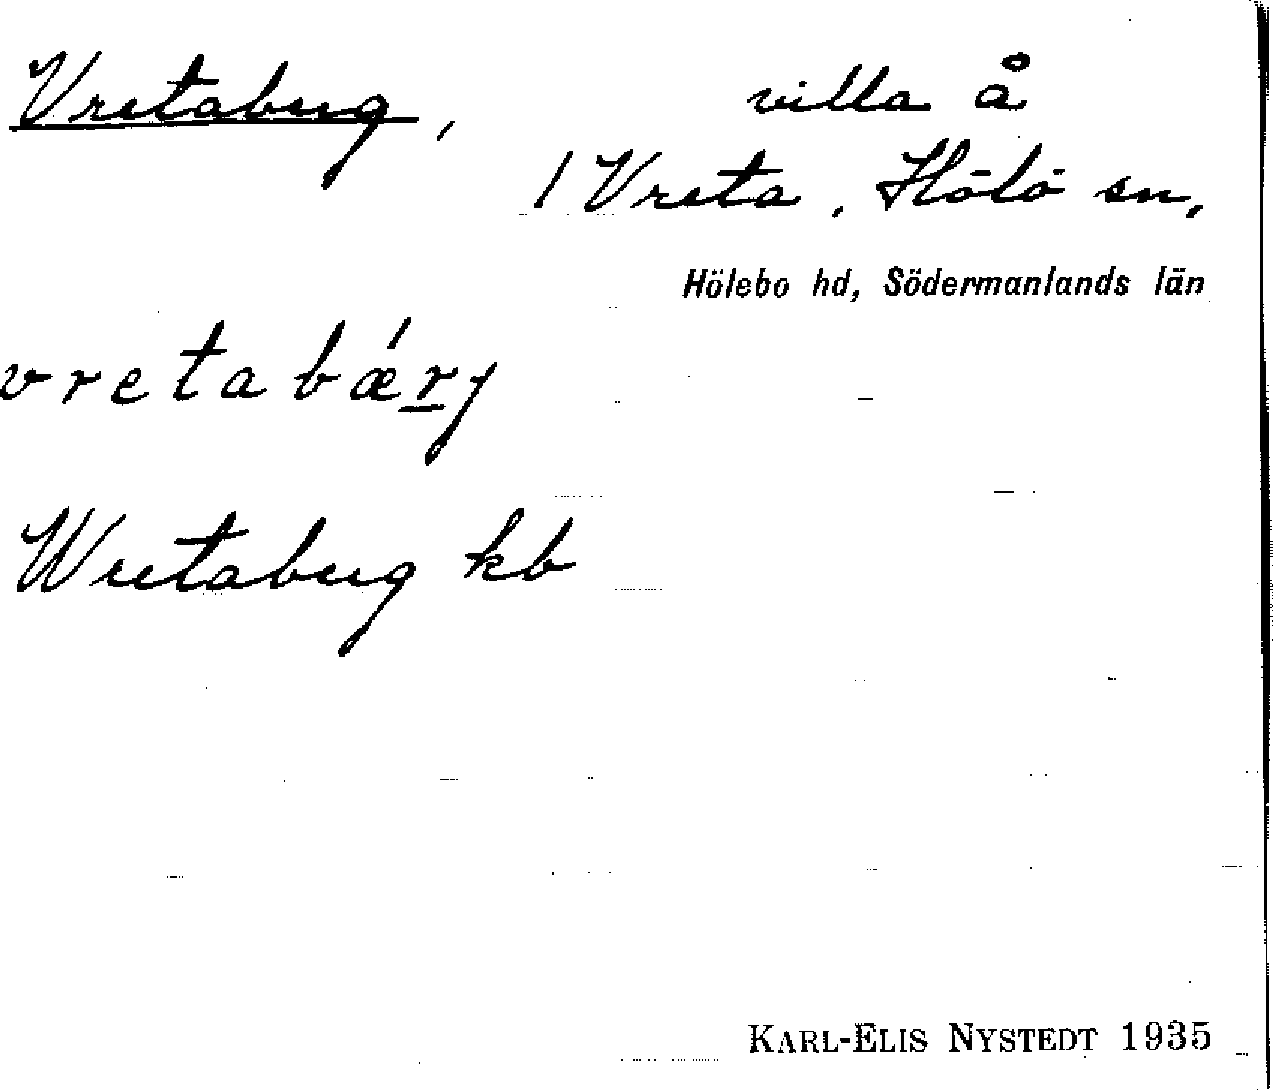 Vretaberg, villa å
1 Vreta, Hölö sn,
Hölebo hd, Södermanlands län
vretabǽr̲j
Wretaberg kb
KARL-ELIS NYSTEDT 1935